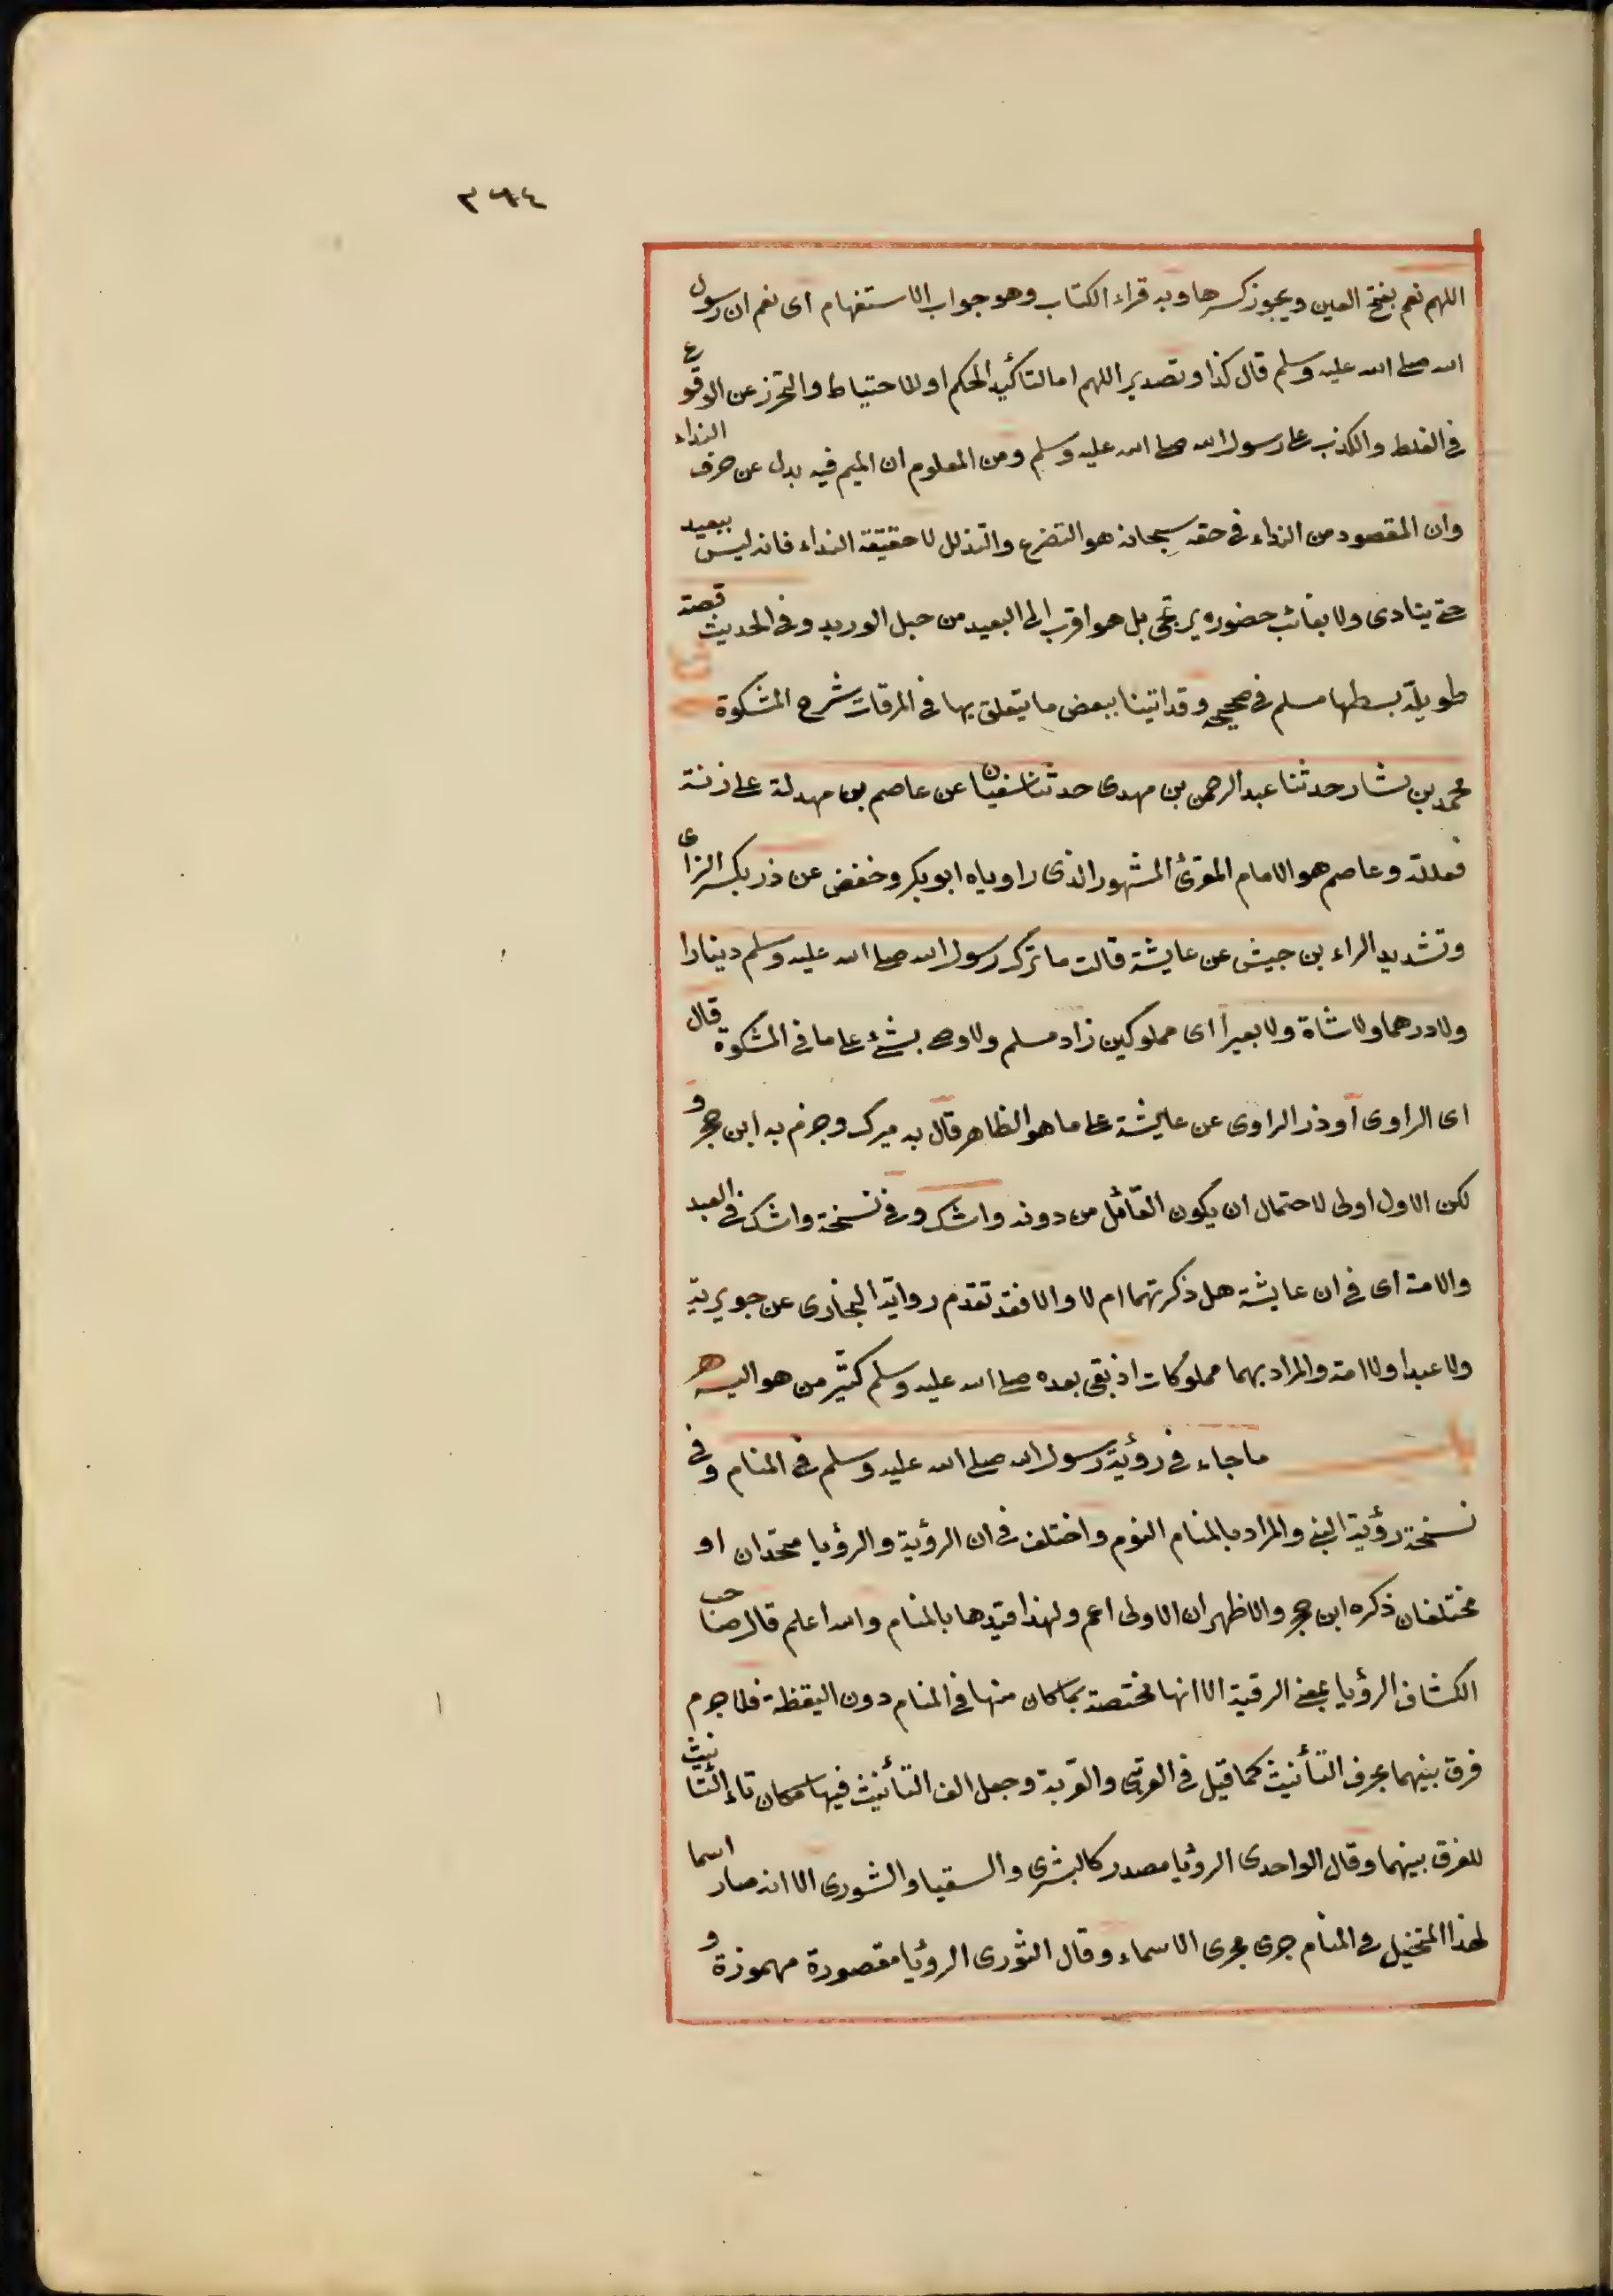 ٣٩٤
اللهم نعم بفتح العين ويجوز كسرها وبه قراء الكتاب وهو جواب الاستفهام اى نعم ان رسول
الله صلى الله عليه وسلم قال كذا وتصدير اللهم اما لتاكيد الحكم او للاحتياط والتحرز عن الوقوع
فى الغلط والكذب على رسول الله صلى الله عليه وسلم ومن المعلوم ان الميم فيه بدل عن حرف النداء
وان المقصود من النداء فى حقه سبحانه هو التضرع والتذلل لا حقيقة النداء فانه ليس ببعيد
حتى ينادى ولا بغائب حضوره يرتجى بل هو اقرب الى البعيد من حبل الوريد وفى الحديث قصة
طويلة بسطها مسلم فى صحيحه وقد اتينا ببعض ما يتعلق بها فى المرقات شرح المشكوة
محمد بن بشار حدثنا عبد الرحمن بن مهدى حدثنا سفيان عن عاصم بن مهدلة على زنة
فعللة وعاصم هو الامام المقرئ المشهور الذى راوياه ابو بكر وخفض عن ذر بكسر الزاى
وتشديد الراء بن جيش عن عايشة قالت ما ترك رسول الله صلى الله عليه وسلم دينارا
ولا درهما ولا شاة ولا بعيرا اى مملوكين زاد مسلم ولا وصى بشئ على ما فى المشكوة قال
اى الراوى او ذر الراوى عن عايشة على ما هو الظاهر قال به ميرك وجزم به ابن حجر و
لكن الاول اولى لاحتمال ان يكون القائل من دونه واشك وفى نسخة واشك فى العبد
والامة اى فى ان عايشة هل ذكرتهما ام لا والا فقد تقدم رواية البخارى عن جويرية
ولا عبدا ولا امة والمراد بهما مملوكات اذ بقى بعده صلى الله عليه وسلم كثير من مواليه
ما جاء فى رؤية رسول الله صلى الله عليه وسلم فى المنام وفى
نسخة رؤية النبى والمراد بالمنام النوم واختلف فى ان الرؤية والرؤيا متحدان او
مختلفان ذكره ابن حجر والاظهر ان الاولى اعم ولهذا قيدها بالمنام والله اعلم قال صاحب
الكشاف الرؤيا بمعنى الرؤية الا انها مختصة بما كان منها فى المنام دون اليقظة فلا جرم
فرق بينهما بحرف التأنيث كما قيل فى القربى والقربة وجعل الف التأنيث فيها مكان تاء التأنيث
للفرق بينهما وقال الواحدى الرؤيا مصدر كالبشرى والسقيا والشورى الا انه صار اسما
لهذا المتخيل فى المنام جرى مجرى الاسماء وقال الثورى الرؤيا مقصورة مهموزة و